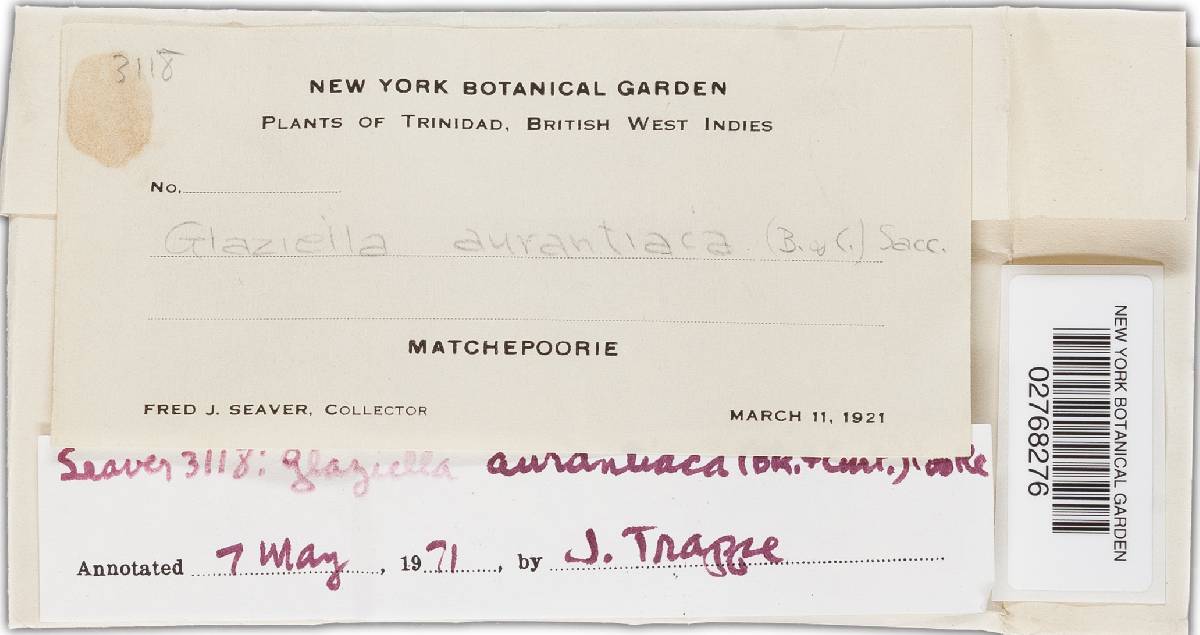 3118
NEW YORK BOTANICAL GARDEN
PLANTS OF TRINIDAD, BRITISH WEST INDIES
No.
Glaziella aurantiaca (B. & C.) Sacc.
MATCHEPOORIE
FRED J. SEAVER, COLLECTOR
MARCH 11, 1921
Seaver 3118: Glaziella aurantiaca (Bk. + Curt.) Cooke
Annotated 7 May, 1971, by J. Trappe
NEW YORK BOTANICAL GARDEN
02768276